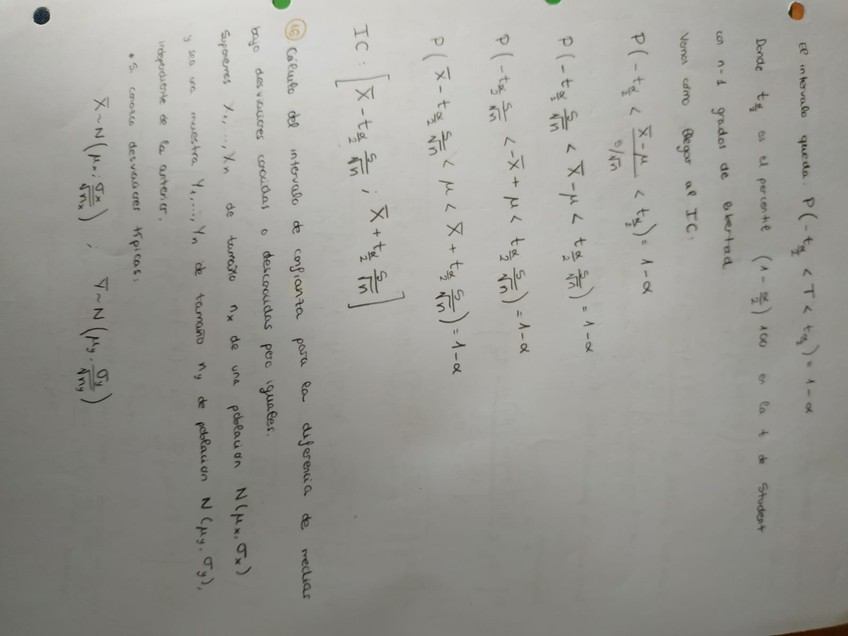 El intervalo queda: P(-t_{α/2} < T < t_{α/2}) = 1-α
Donde t_{α/2} es el percentil (1-α/2)100 en la t de Student
con n-1 grados de libertad
Vamos cómo llegar al IC:
P(-t_{α/2} < \frac{X̄-μ}{s/√n} < t_{α/2}) = 1-α
P(-t_{α/2} \frac{s}{√n} < X̄-μ < t_{α/2} \frac{s}{√n}) = 1-α
P(-t_{α/2} \frac{s}{√n} < -X̄+μ < t_{α/2} \frac{s}{√n}) = 1-α
P(X̄-t_{α/2} \frac{s}{√n} < μ < X̄+t_{α/2} \frac{s}{√n}) = 1-α
IC: [X̄-t_{α/2} \frac{s}{√n} ; X̄+t_{α/2} \frac{s}{√n}]
16 Cálculo del intervalo de confianza para la diferencia de medias
bajo desviaciones conocidas o desconocidas pero iguales.
Suponemos X_1,..., X_n de tamaño n_x de una población N(μ_x, σ_x)
y sea una muestra Y_1,..., Y_n de tamaño n_y de población N(μ_y, σ_y),
independiente de la anterior.
• Si conozco desviaciones típicas:
X̄~N(μ_x; \frac{σ_x}{√n_x}) ; Ȳ~N(μ_y, \frac{σ_y}{√n_y})